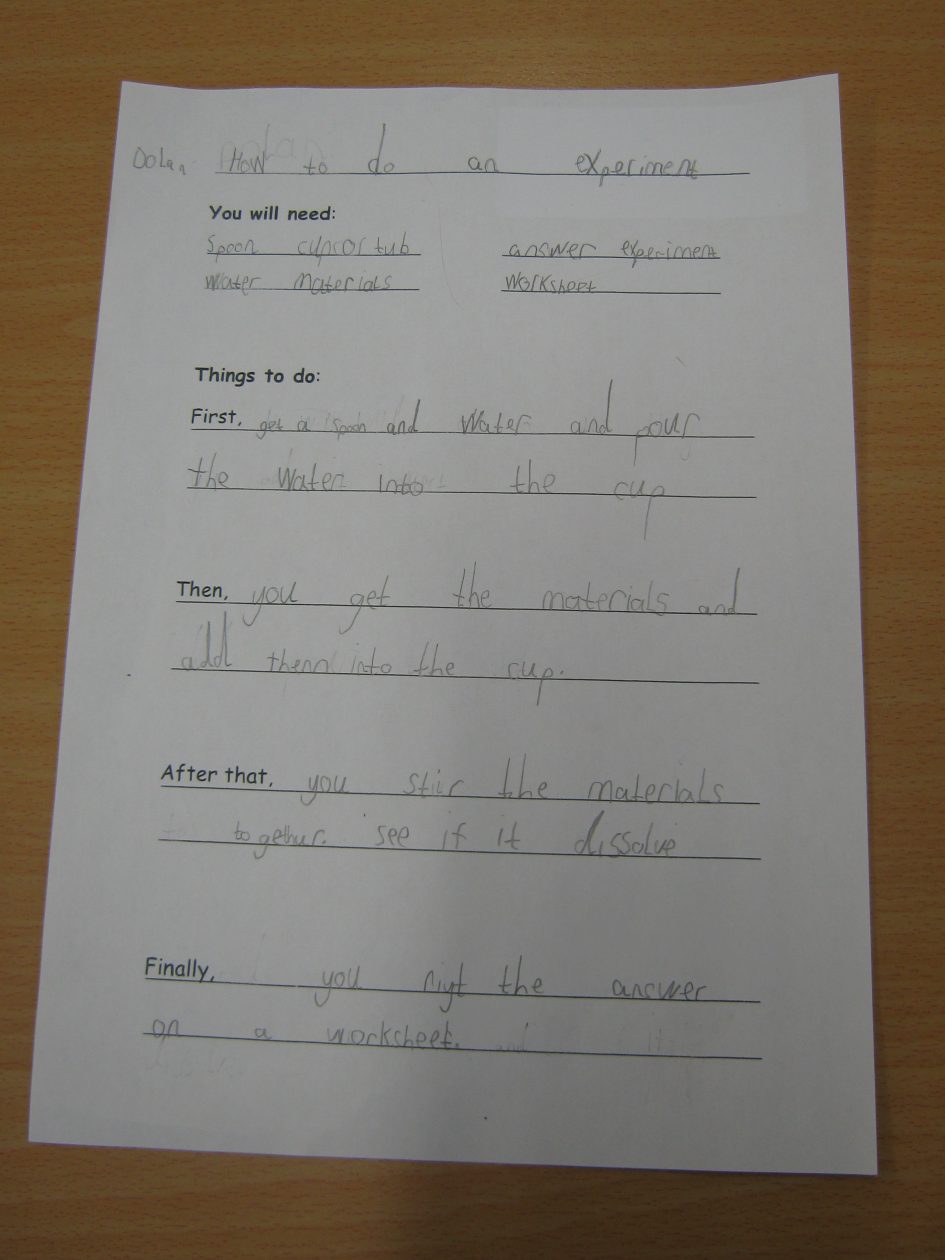 Oolan How to do an experiment
You will need:
Spoon cup or tub answer experiment
Water materials worksheet
Things to do:
First, get a spoon and Water and pour
the Water into the cup
Then, you get the materials and
add them into the cup.
After that, you stiir the materials
to gethur. see if it dissolve
Finally, you riyt the answer
on a worksheet.